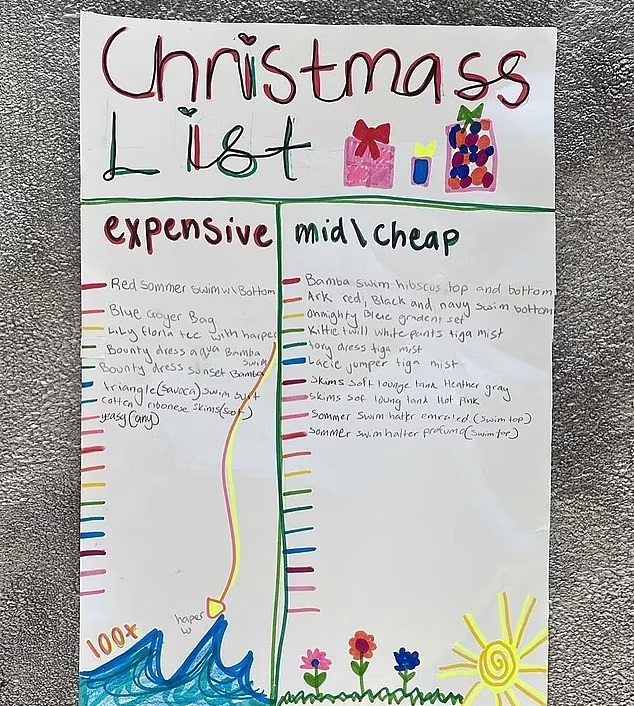 Christmass
List
expensive
Red Sommer swim w\ Bottom
Blue Goyer Bag
Lily floria tee with harper
Bounty dress aqua Bamba
swim
Bounty dress sunset Bamba
triangle (savoca) swim suit
cotten ribonese skims (sot)
yeasy (any)
haper
w
100+
mid\cheap
Bamba swim hibscus top and bottom
Ark red, Black and navy swim bottom
Onmighty blue gradent set
Kittie twill white pants tiga mist
tory dress tiga mist
Lacie jumper tiga mist
Skims soft lounge tank Heather gray
skims sof loung tank Hot pink
Sommer swim halter emraled (swim top)
Sommer swim halter profuma (swim top)